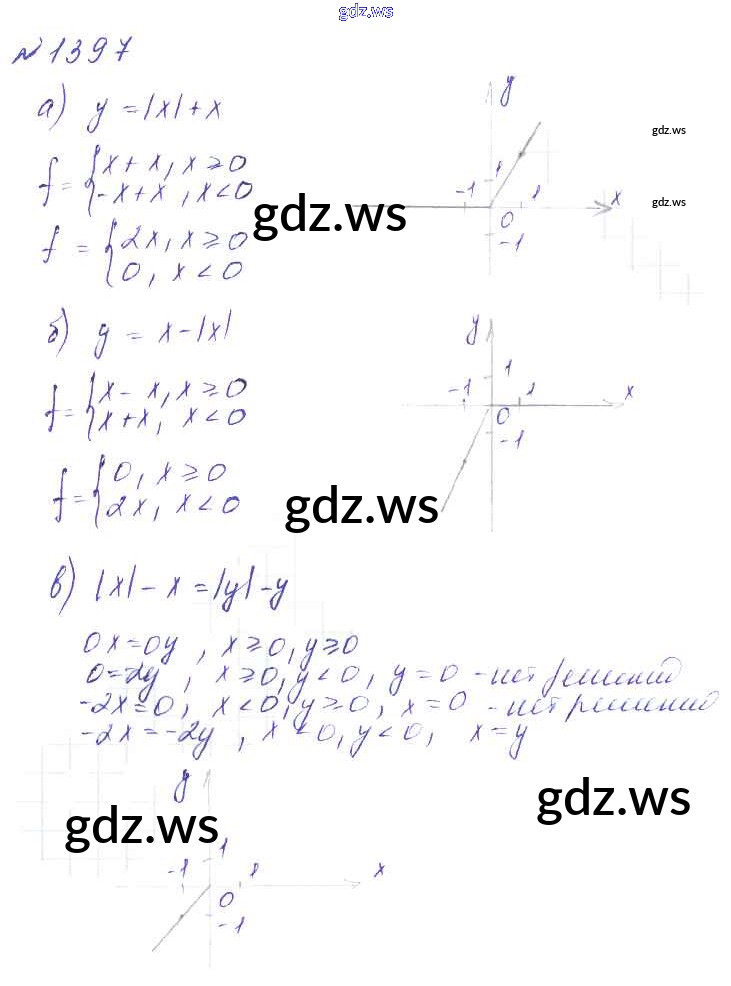 gdz.ws
№ 1397
а) y = |x| + x
f = { x + x, x ≥ 0
-x + x, x < 0
f = { 2x, x ≥ 0
0, x < 0
y
gdz.ws
-1 1 1 x
gdz.ws
0
-1
gdz.ws
б) y = x - |x|
f = { x - x, x ≥ 0
x + x, x < 0
f = { 0, x ≥ 0
2x, x < 0
y
1
-1 1 x
0
-1
gdz.ws
в) |x| - x = |y| - y
0x = 0y, x ≥ 0, y ≥ 0
0 = 2y, x ≥ 0, y < 0, y = 0 - нет решений
-2x = 0, x < 0, y ≥ 0, x = 0 - нет решений
-2x = -2y, x < 0, y < 0, x = y
y
gdz.ws
gdz.ws
1
-1 1 x
0
-1